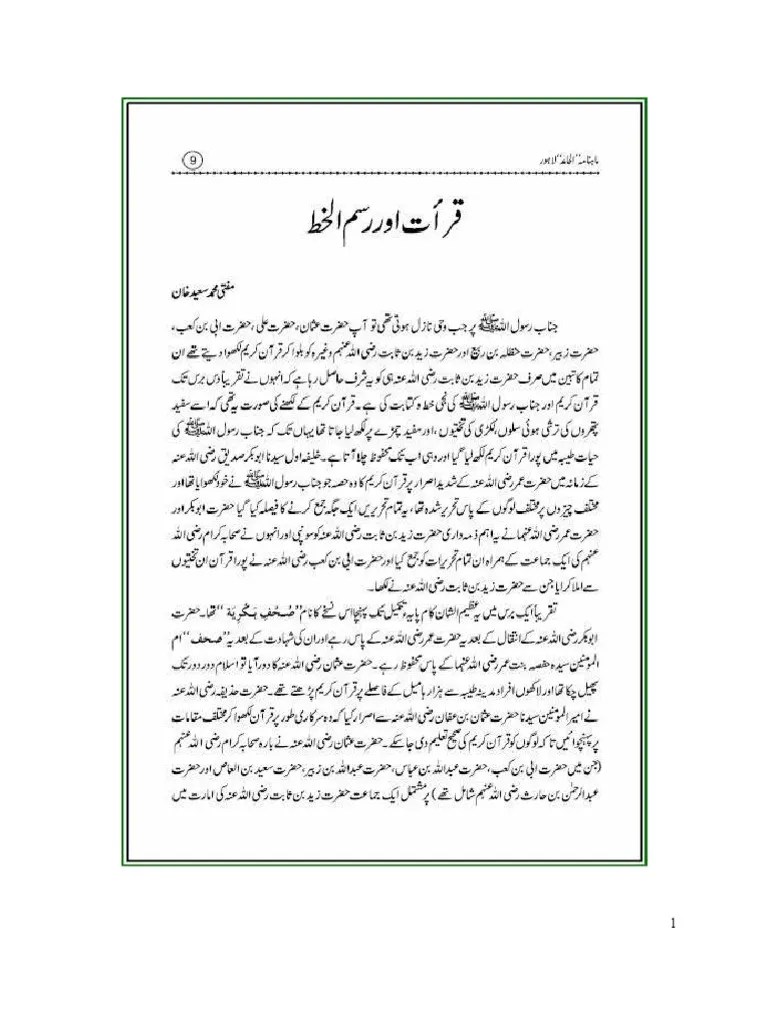 ماہنامہ "الحامد" لاہور 9
قرأت اور رسم الخط
مفتی محمد سعید خان
جناب رسول اللہ ﷺ پر جب وحی نازل ہوتی تھی تو آپ حضرت عثمان، حضرت علی، حضرت ابی بن کعب،
حضرت زبیر، حضرت حنظلہ بن ربیع اور حضرت زید بن ثابت رضی اللہ عنہم وغیرہ کو بلوا کر قرآن کریم لکھوا دیتے تھے ان
تمام کاتبین میں صرف حضرت زید بن ثابت رضی اللہ عنہ ہی کو یہ شرف حاصل رہا ہے کہ انہوں نے تقریباً دس برس تک
قرآن کریم اور جناب رسول اللہ ﷺ کی نجی خط و کتابت کی ہے۔ قرآن کریم کے لکھنے کی صورت یہ تھی کہ اسے سفید
پتھروں کی ترشی ہوئی سلوں، لکڑی کی تختیوں، اور سفید چمڑے پر لکھ لیا جاتا تھا یہاں تک کہ جناب رسول اللہ ﷺ کی
حیات طیبہ میں پورا قرآن کریم لکھ لیا گیا اور وہی اب تک محفوظ چلا آتا ہے۔ خلیفہ اول سیدنا ابوبکر صدیق رضی اللہ عنہ
کے زمانہ میں حضرت عمر رضی اللہ عنہ کے شدید اصرار پر قرآن کریم کا وہ حصہ جو جناب رسول اللہ ﷺ نے خود لکھوایا تھا اور
مختلف چیزوں پر مختلف لوگوں کے پاس تحریر شدہ تھا، یہ تمام تحریریں ایک جگہ جمع کرنے کا فیصلہ کیا گیا حضرت ابوبکر اور
حضرت عمر رضی اللہ عنہما نے یہ اہم ذمہ داری حضرت زید بن ثابت رضی اللہ عنہ کو سونپی اور انہوں نے صحابہ کرام رضی اللہ
عنہم کی ایک جماعت کے ہمراہ ان تمام تحریرات کو جمع کیا اور حضرت ابی بن کعب رضی اللہ عنہ نے پورا قرآن ان تختیوں
سے املا کرایا جن سے حضرت زید بن ثابت رضی اللہ عنہ نے لکھا۔
تقریباً ایک برس میں یہ عظیم الشان کام پایہ تکمیل تک پہنچا اس نسخے کا نام "صُحُفِ بَکْرِیَة" تھا۔ حضرت
ابوبکر رضی اللہ عنہ کے انتقال کے بعد یہ حضرت عمر رضی اللہ عنہ کے پاس رہے اور ان کی شہادت کے بعد یہ "صحف" ام
المؤمنین سیدہ حفصہ بنت عمر رضی اللہ عنہما کے پاس محفوظ رہے۔ حضرت عثمان رضی اللہ عنہ کا دور آیا تو اسلام دور دور تک
پھیل چکا تھا اور لاکھوں افراد مدینہ طیبہ سے ہزار ہا میل کے فاصلے پر قرآن کریم پڑھتے تھے۔ حضرت حذیفہ رضی اللہ عنہ
نے امیر المؤمنین سیدنا حضرت عثمان بن عفان رضی اللہ عنہ سے اصرار کیا کہ وہ سرکاری طور پر قرآن لکھوا کر مختلف مقامات
پر پہنچوائیں تاکہ لوگوں کو قرآن کریم کی صحیح تعلیم دی جا سکے۔ حضرت عثمان رضی اللہ عنہ نے بارہ صحابہ کرام رضی اللہ عنہم
(جن میں حضرت ابی بن کعب، حضرت عبداللہ بن عباس، حضرت عبداللہ بن زبیر، حضرت سعید بن العاص اور حضرت
عبدالرحمٰن بن حارث رضی اللہ عنہم شامل تھے) پر مشتمل ایک جماعت حضرت زید بن ثابت رضی اللہ عنہ کی امارت میں
1